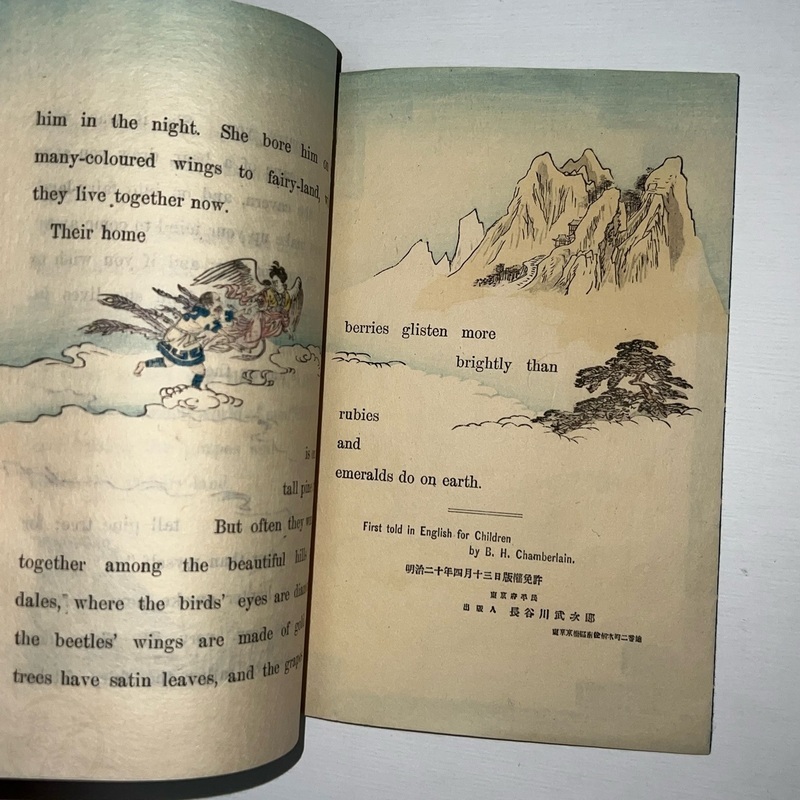 him in the night. She bore him on
many-coloured wings to fairy-land,
they live together now.
Their home
is
tall
But often they
together among the beautiful hills
dales, where the birds' eyes are
the beetles' wings are made of
trees have satin leaves, and the
berries glisten more
brightly than
rubies
and
emeralds do on earth.
First told in English for Children
by B. H. Chamberlain.
明治二十年四月十三日版權免許
東京府平民
出版人 長谷川武次郎